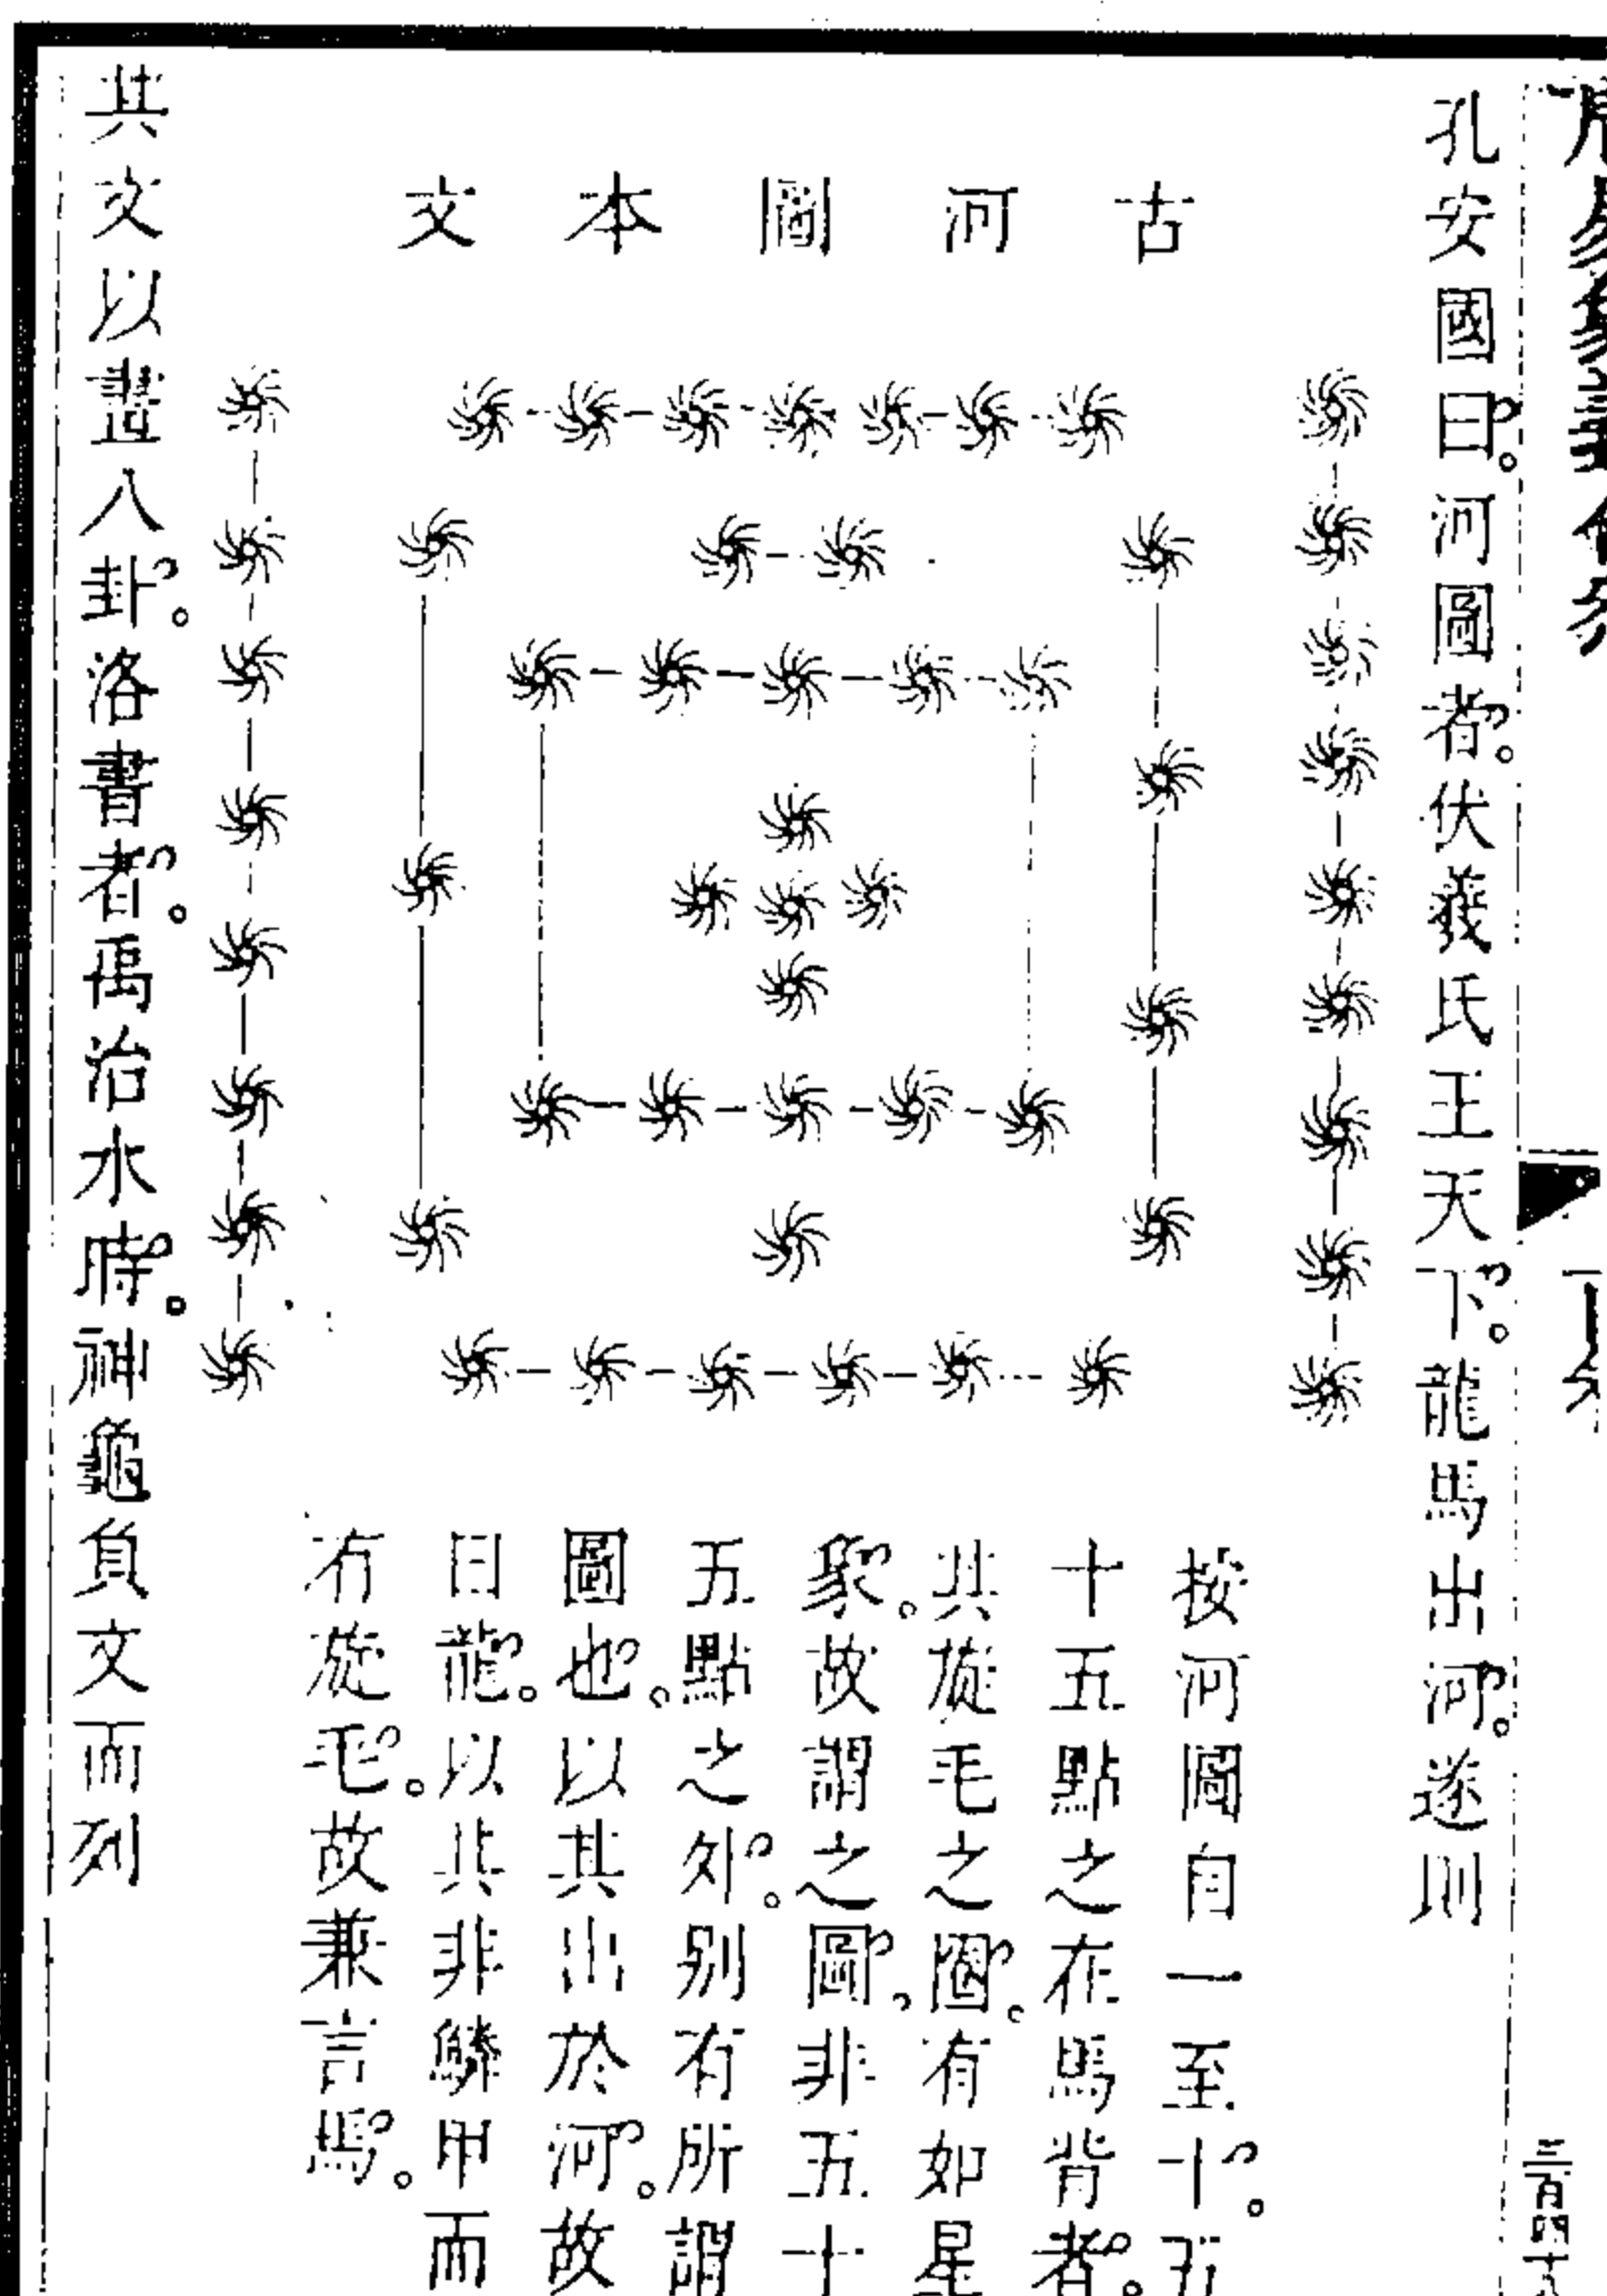 孔安國曰。河圖者。伏羲氏王天下。龍馬出河。遂則
古河圖本文
按河圖自一至十。五
十五點之在馬背者。
其旋毛之圈。有如星
象。故謂之圖。非五十
五點之外。別有所謂
圖也。以其出於河。故
曰龍。以其非鱗甲而
有旋毛。故兼言馬。
其文以畫八卦。洛書者。禹治水時。神龜負文而列